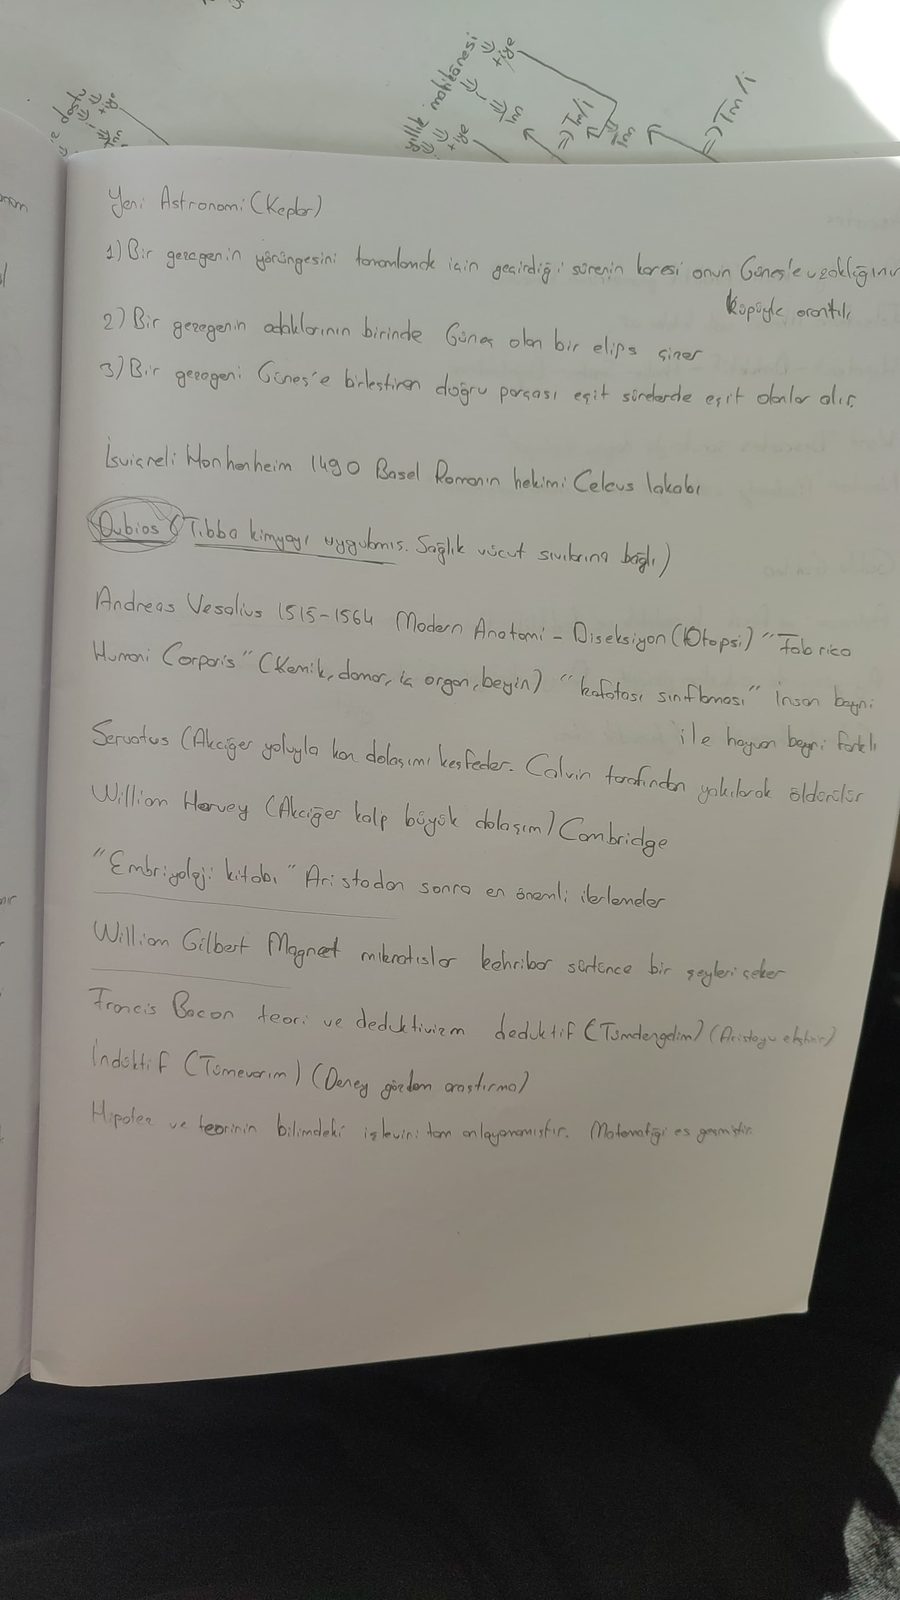 yıllık matkânesi
+iye
+iye
Tm
=> Tm/i
Tm
=> Tm/i
Yeni Astronomi (Kepler)
1) Bir gezegenin yörüngesini tamamlamak için geçirdiği sürenin karesi onun Güneş'e uzaklığının
küpüyle orantılı
2) Bir gezegenin odaklarının birinde Güneş olan bir elips çizer
3) Bir gezegeni Güneş'e birleştiren doğru parçası eşit sürelerde eşit alanlar alır.
İsviçreli Honhenheim 1490 Basel Romanın hekimi Celcus lakabı
Dubios (Tıbba kimyayı uygulamış. Sağlık vücut sıvılarına bağlı)
Andreas Vesalius 1515-1564 Modern Anatomi - Diseksiyon (Otopsi) "Fabrica
Humani Corporis" (Kemik, damar, iç organ, beyin) "kafatası sınıflaması" insan beyni
ile hayvan beyni farklı
Servatus (Akciğer yoluyla kan dolaşımı keşfeder. Calvin tarafından yakılarak öldürülür
William Harvey (Akciğer kalp büyük dolaşım) Cambridge
"Embriyoloji kitabı" Aristodan sonra en önemli ilerlemeler
William Gilbert Magnet mıknatıslar kehribar sürtünce bir şeyleri çeker
Francis Bacon teori ve deduktivizm deduktif (Tümdengelim) (Aristoyu eleştirir)
İndüktif (Tümevarım) (Deney gözlem araştırma)
Hipotez ve teorinin bilimdeki işlevini tam anlayamamıştır. Matematiği es geçmiştir.